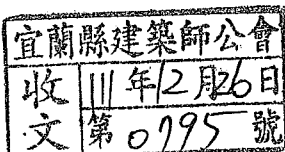 宜蘭縣建築師公會
收文
111年12月26日
第0795號